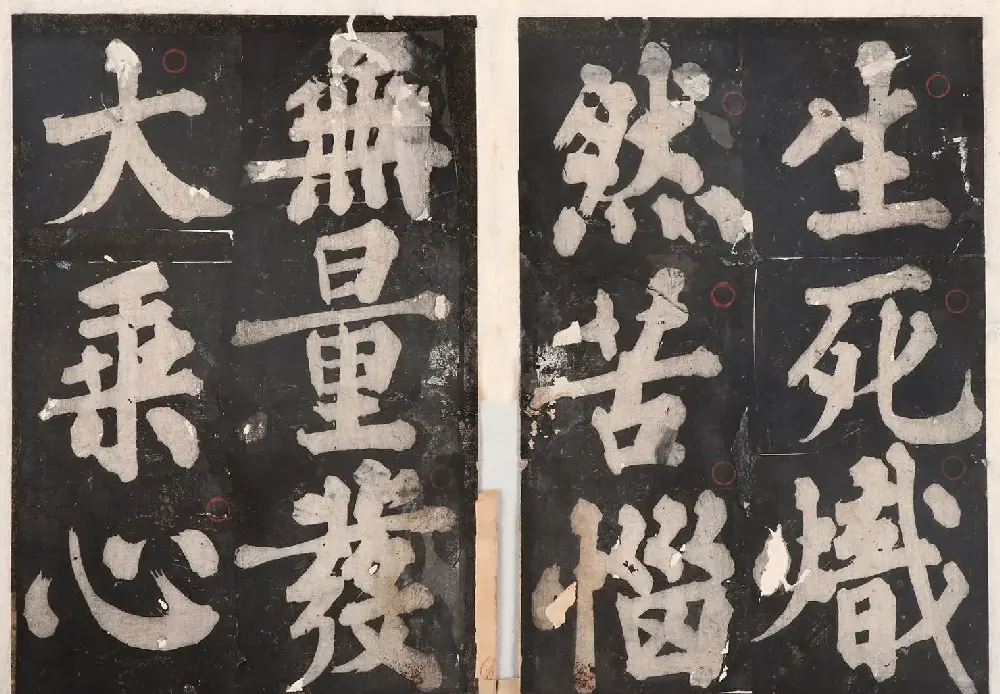 生死熾
然苦惱
無量發
大乘心